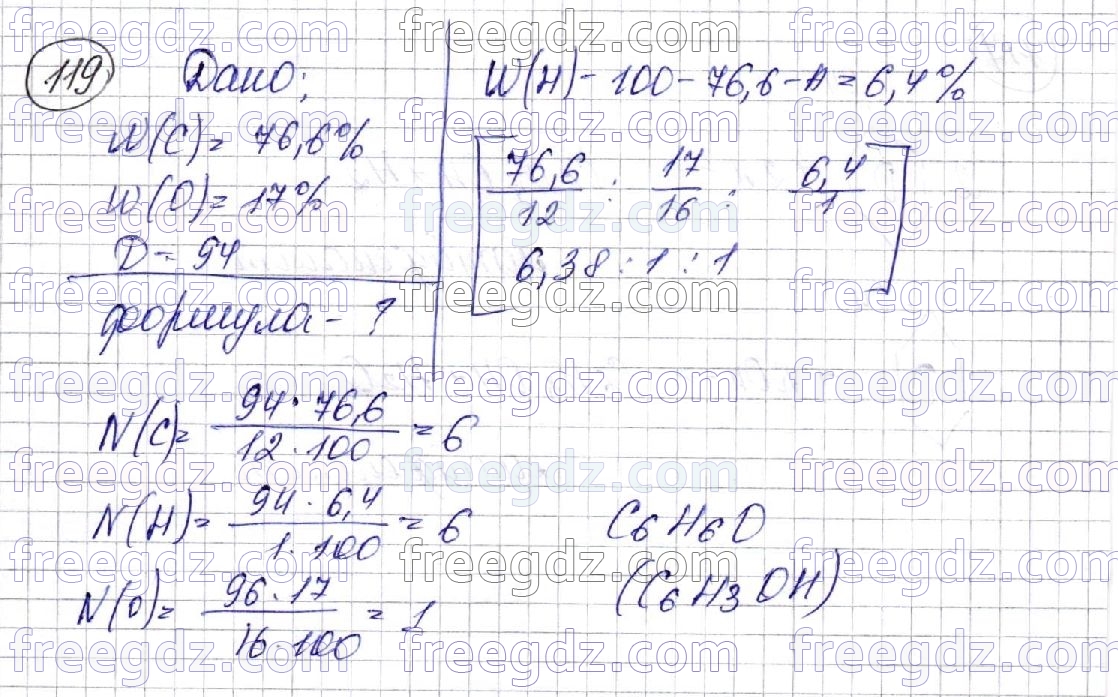 119
Дано;
W(C)= 76,6%
W(O)= 17%
D = 94
формула - ?
W(H) - 100 - 76,6 - А = 6,4%
76,6/12 : 17/16 : 6,4/1
6,38 : 1 : 1
N(C)= 94·76,6/12·100 = 6
N(H)= 94·6,4/1·100 = 6
N(O)= 96·17/16·100 = 1
C6H6O
(C6H3OH)
freegdz.com